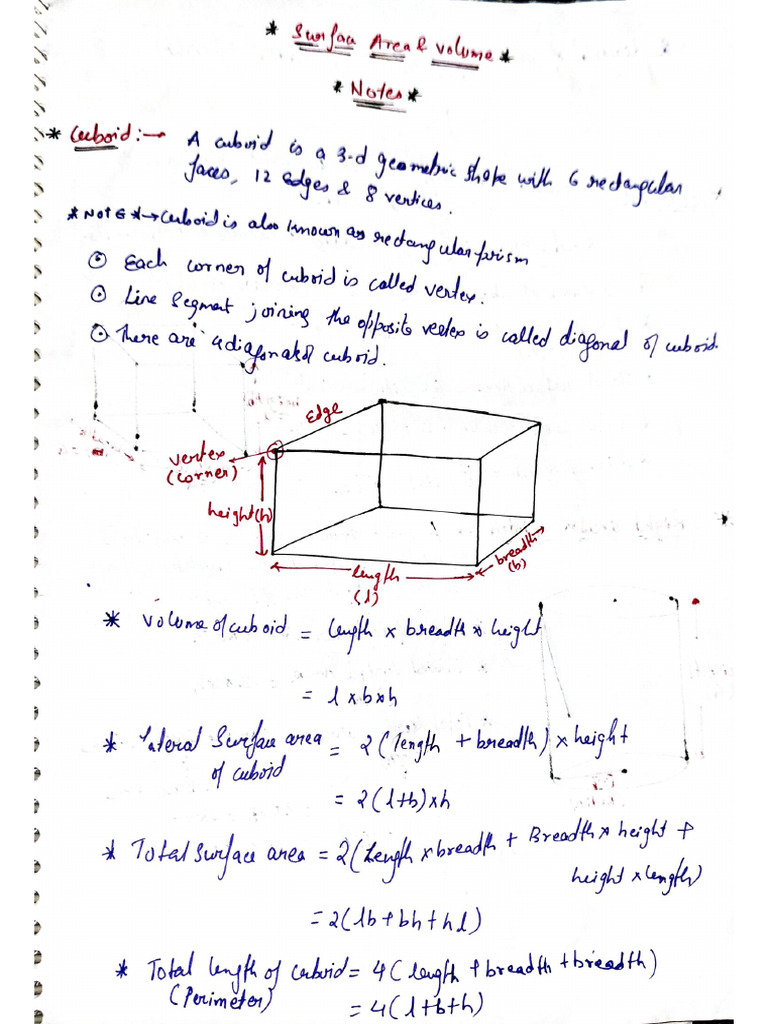 * Surface Area & Volume *
* Notes *
* Cuboid :→ A cuboid is a 3-d geometric shape with 6 rectangular
faces, 12 edges & 8 vertices.
* NOTE * → Cuboid is also known as rectangular prism
⊙ Each corner of cuboid is called vertex.
⊙ Line segment joining the opposite vertex is called diagonal of cuboid.
⊙ There are 4 diagonals of cuboid.
Edge
vertex
(corner)
height(h)
length
(l)
breadth
(b)
* Volume of cuboid = length × breadth × height
= l × b × h
* Lateral Surface area = 2(length + breadth) × height
of cuboid
= 2(l+b)×h
* Total surface area = 2(Length × breadth + Breadth × height +
height × length)
= 2(lb + bh + hl)
* Total length of cuboid = 4(length + breadth + breadth)
(Perimeter) = 4(l+b+h)